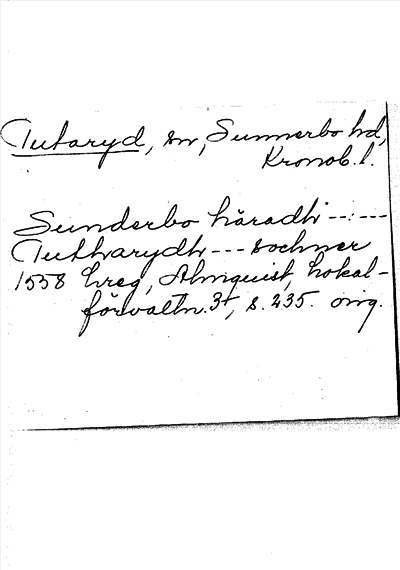 Tutaryd, sn, Sunnerbo hd,
Kronob. l.
Sunderbo häradh --:---
Tutharydh --- sochner
1558 Lreg, Almquist, Lokal-
förvaltn. 3, s. 235. orig.